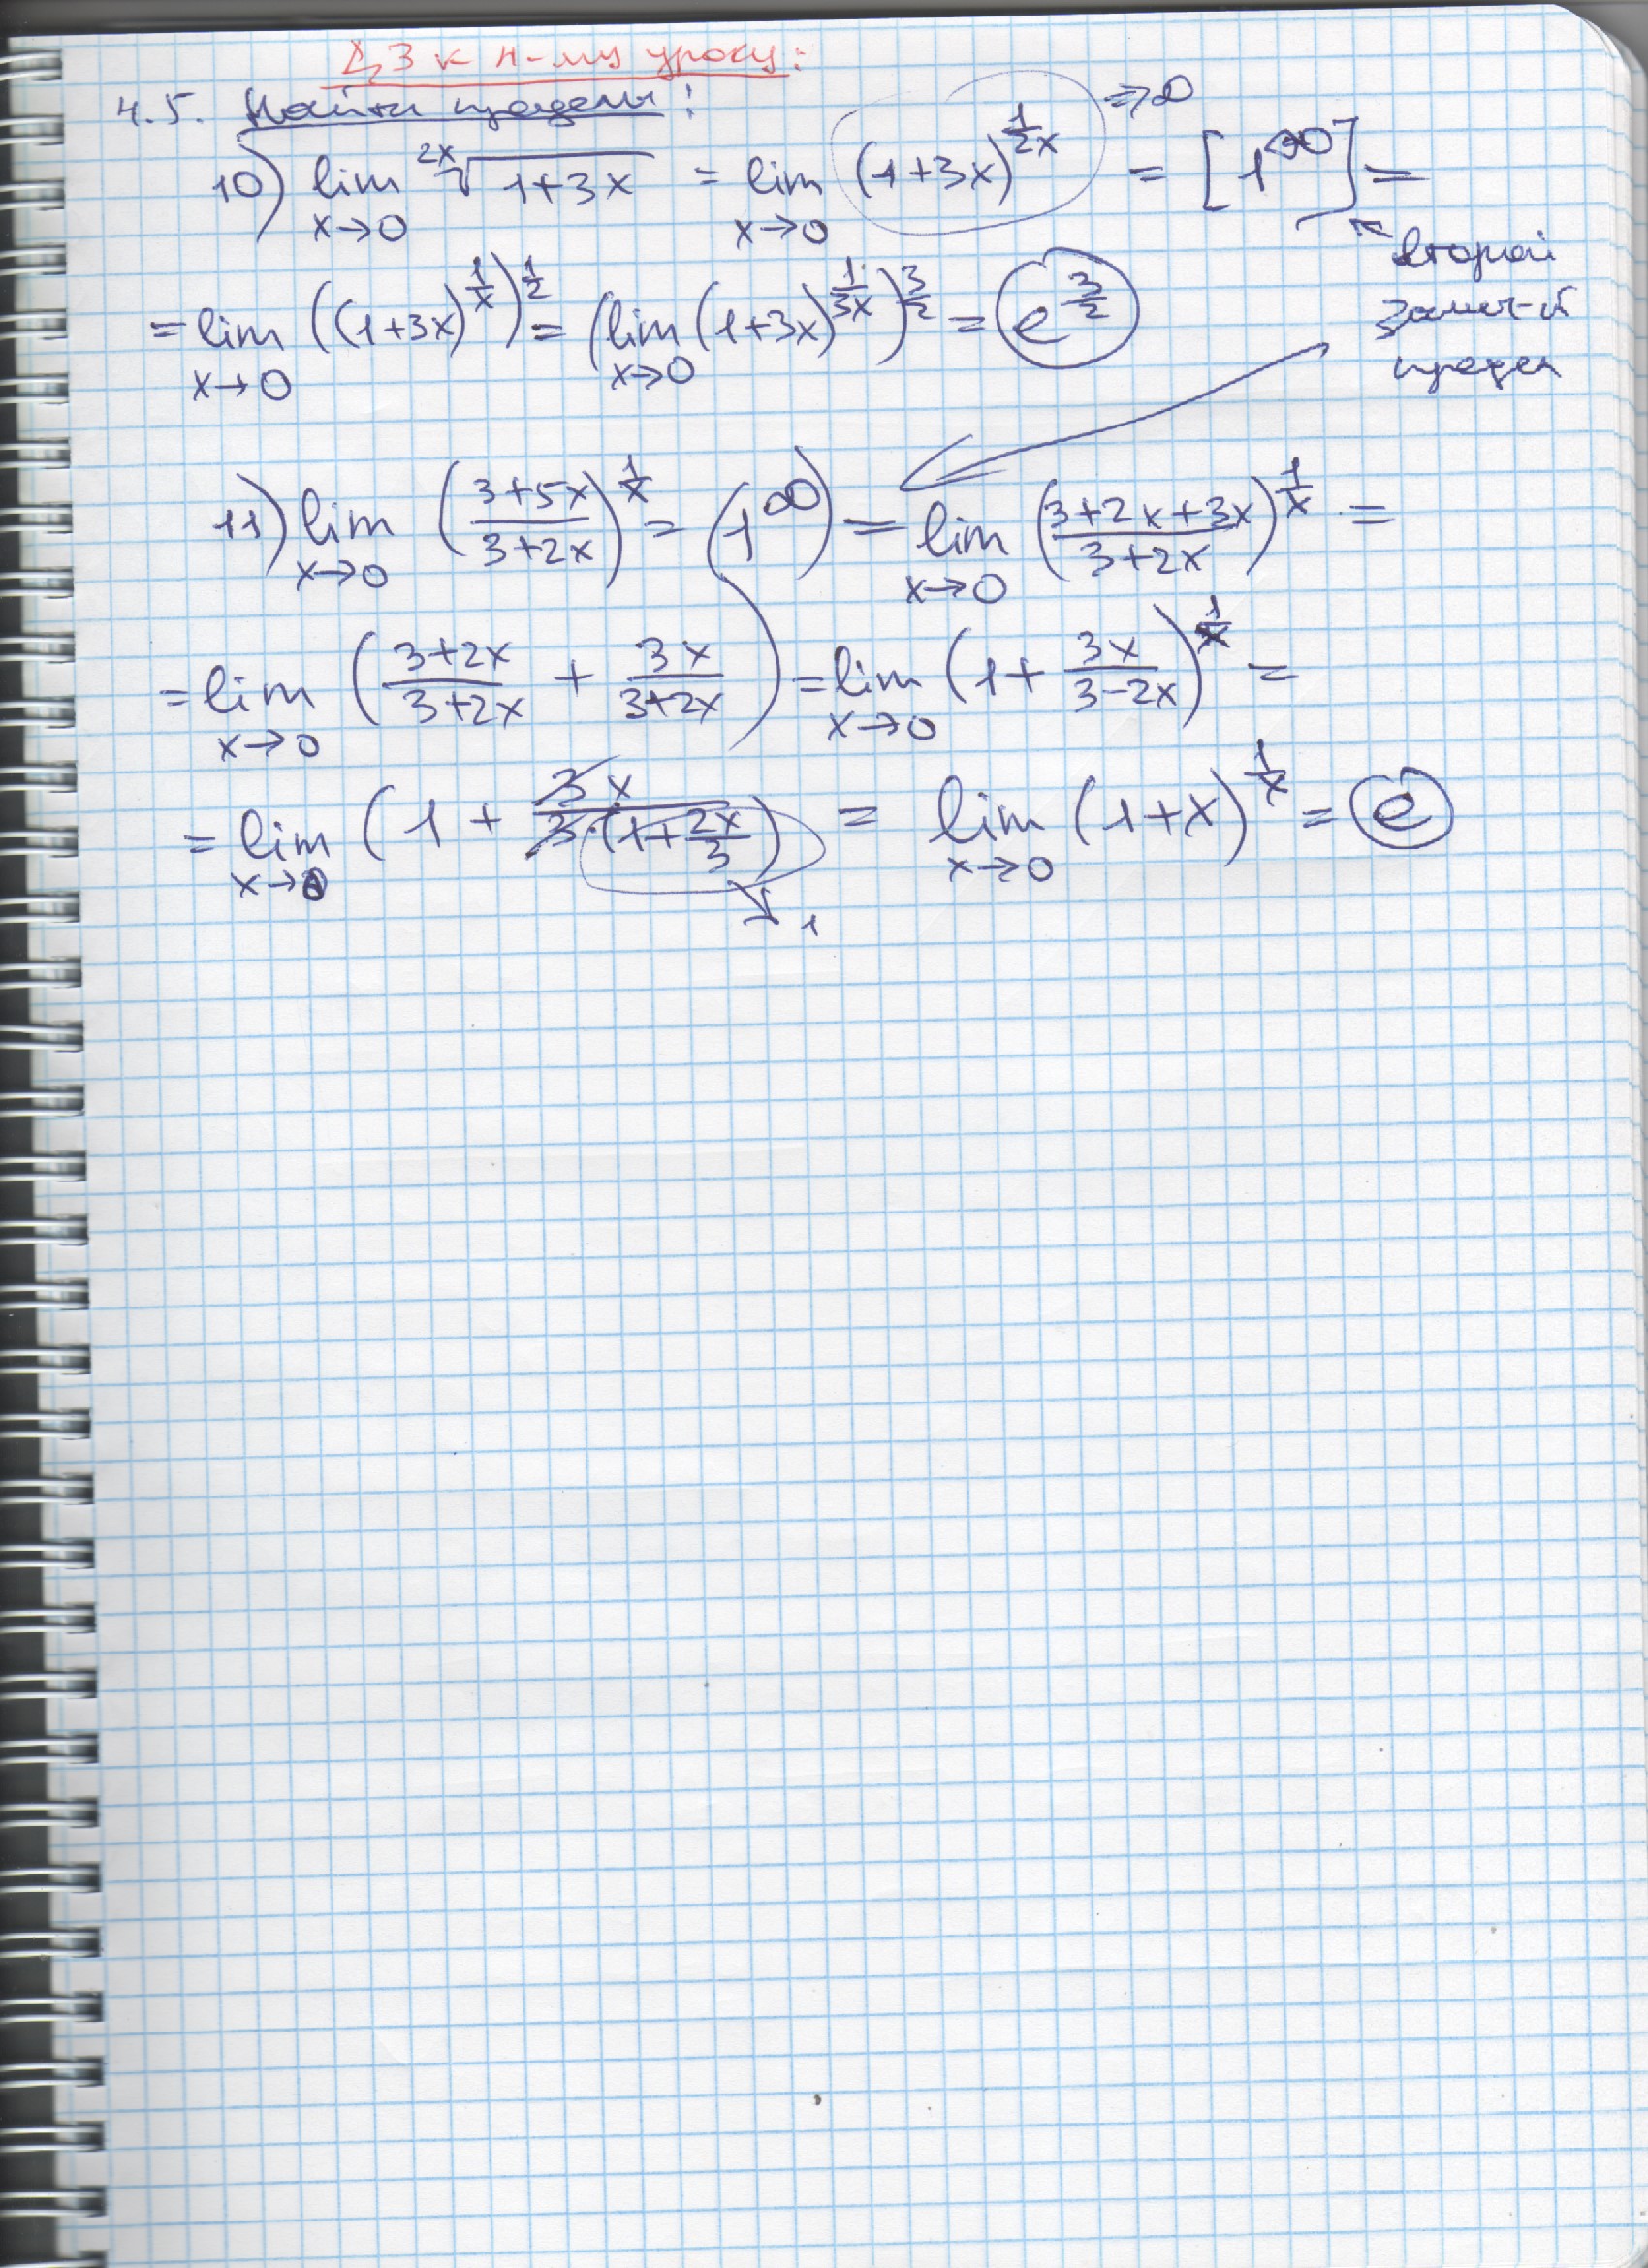 ДЗ к н-му уроку:
4.5. Найти пределы:
10) lim_{x→0} \sqrt[2x]{1+3x} = lim_{x→0} (1+3x)^{\frac{1}{2x}} ⇒∞ = [1^∞] =
← второй
замеч-й
предел
= lim_{x→0} ((1+3x)^{\frac{1}{x}})^{\frac{1}{2}} = (lim_{x→0} (1+3x)^{\frac{1}{3x}})^{\frac{3}{2}} = e^{\frac{3}{2}}
11) lim_{x→0} (\frac{3+5x}{3+2x})^{\frac{1}{x}} = (1^∞) = lim_{x→0} (\frac{3+2x+3x}{3+2x})^{\frac{1}{x}} =
= lim_{x→0} (\frac{3+2x}{3+2x} + \frac{3x}{3+2x}) = lim_{x→0} (1+\frac{3x}{3-2x})^{\frac{1}{x}} =
= lim_{x→0} (1 + \frac{3x}{3·(1+\frac{2x}{3})}) = lim_{x→0} (1+x)^{\frac{1}{x}} = e
↘ 1